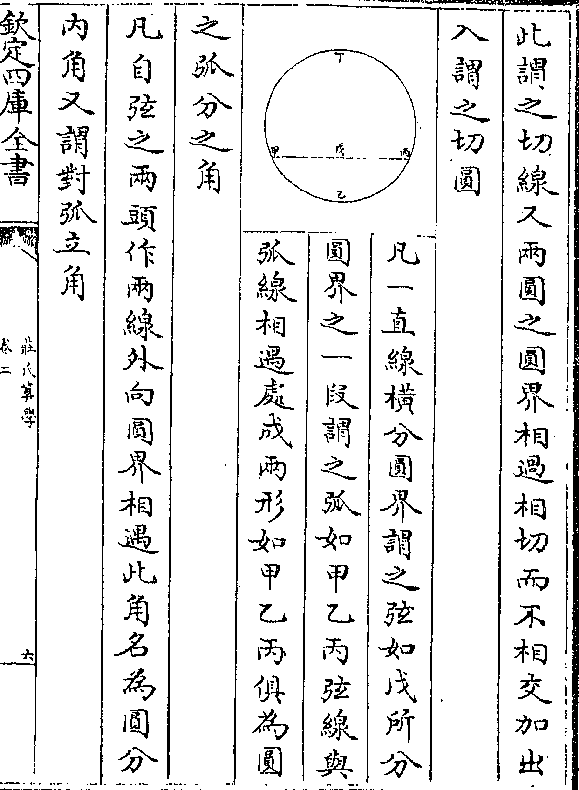 此謂之切線又兩圓之圓界相遇相切而不相交加出
入謂之切圓
丁
甲 戊 丙
乙
凡一直線橫分圓界謂之弦如戊所分
圓界之一段謂之弧如甲乙丙弦線與
弧線相遇處成兩形如甲乙丙俱為圓
之弧分之角
凡自弦之兩頭作兩線外向圓界相遇此角名為圓分
內角又謂對弧立角
欽定四庫全書
莊氏算學
卷二
六